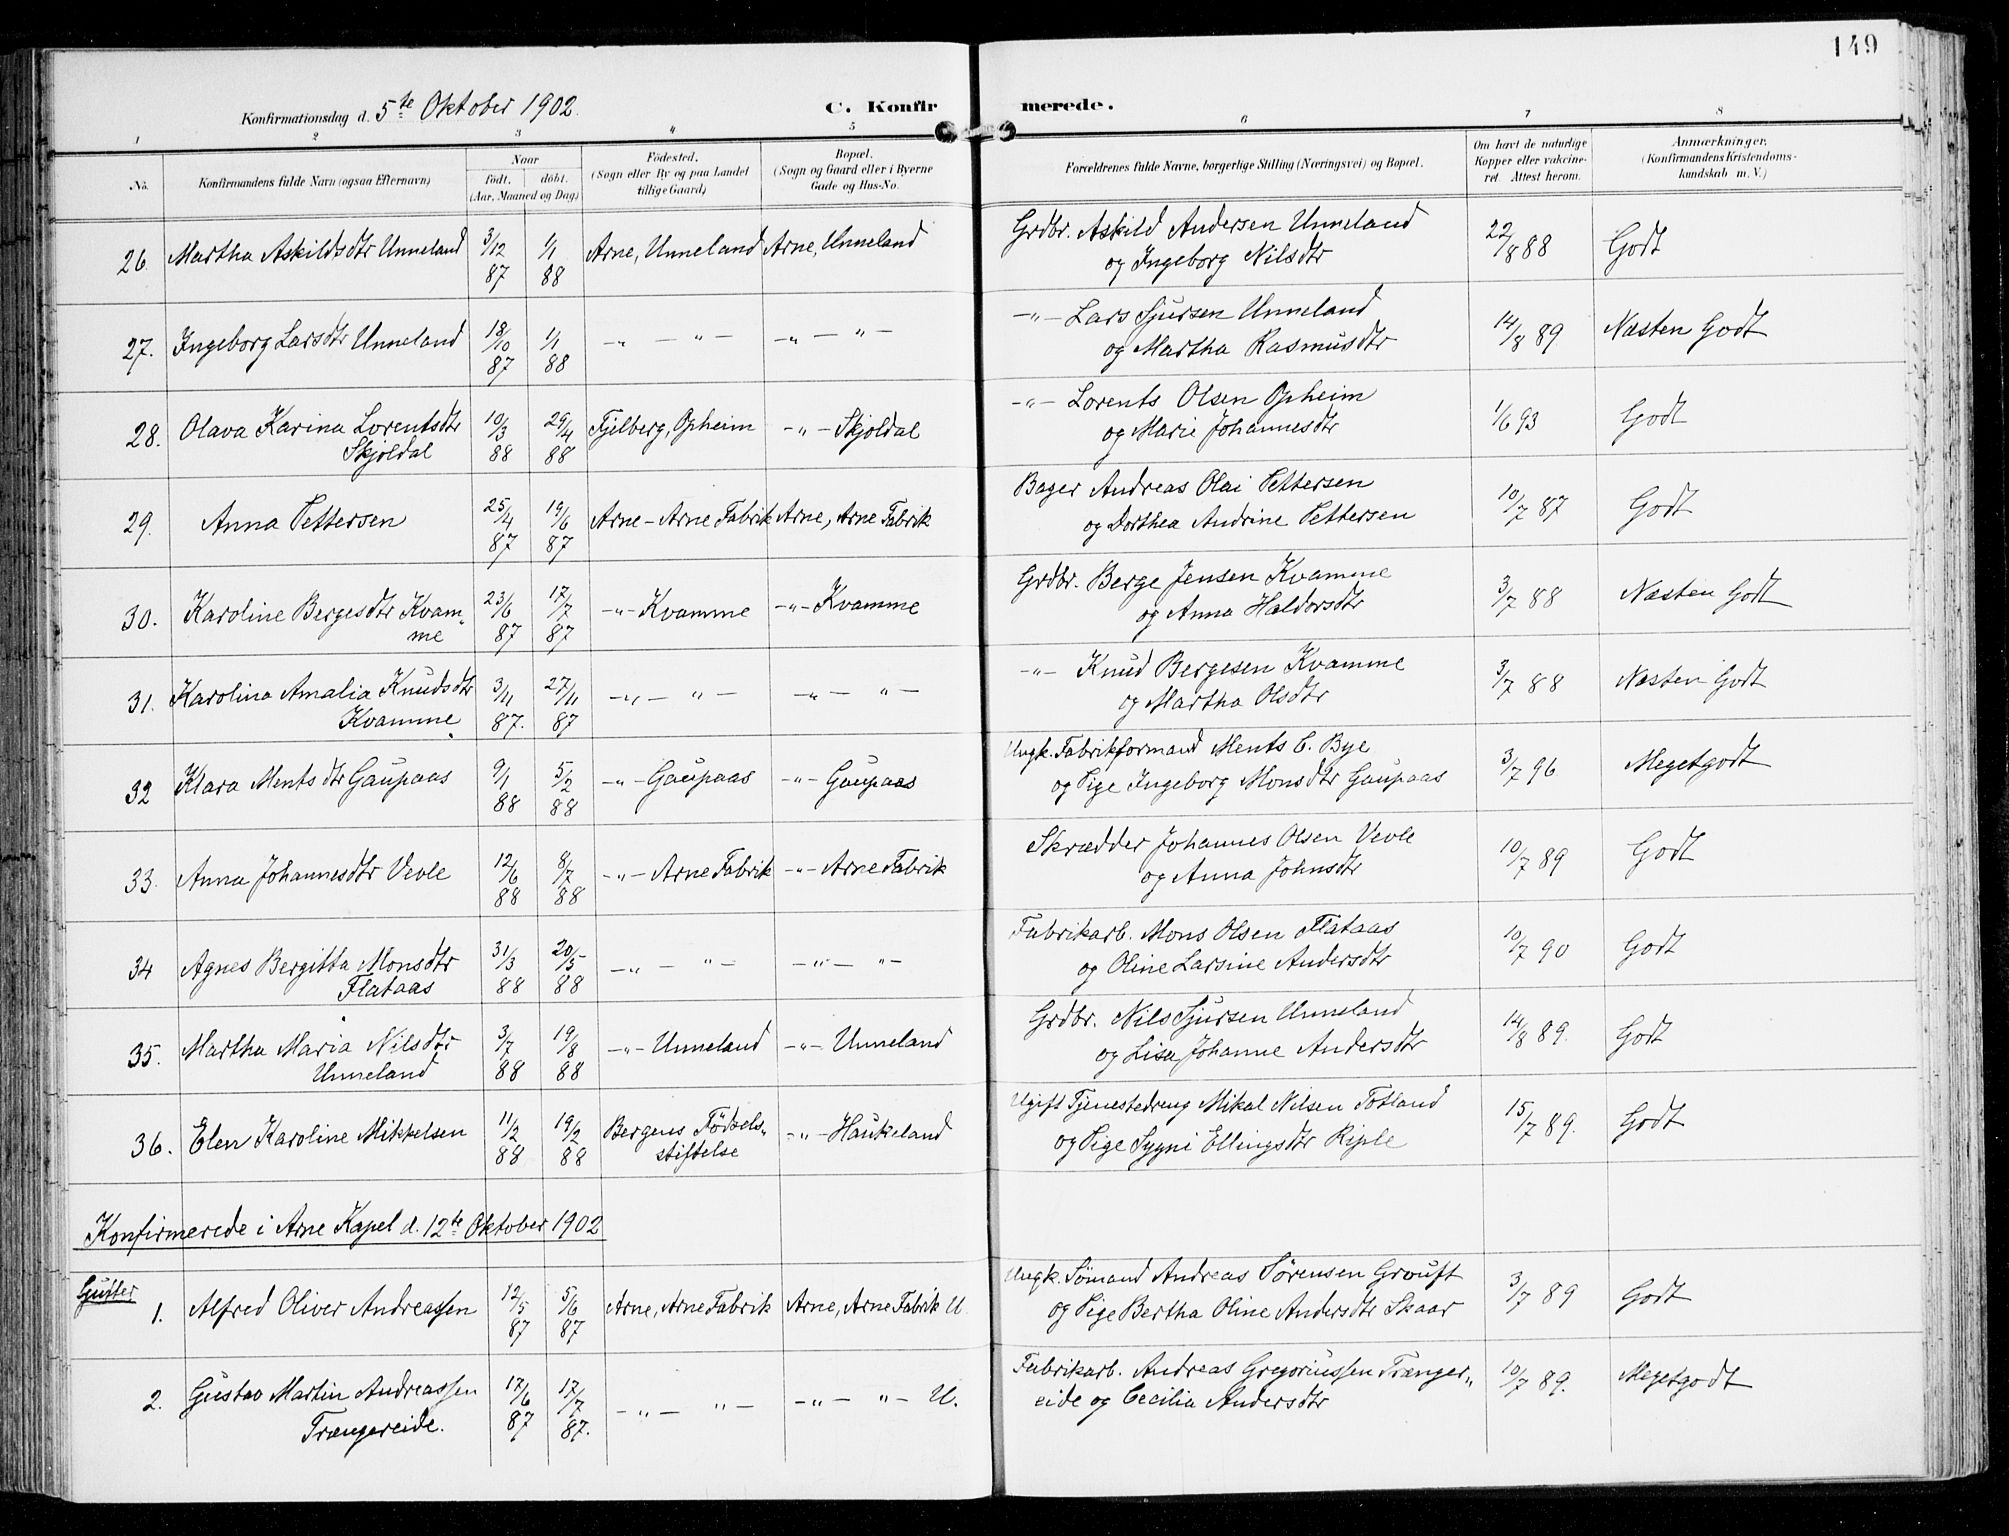 149
Konfirmationsdag d. 5te Oktober 1902. C. Konfirmerede.
1 2 3 4 5 6 7 8
No. Konfirmandens fulde Navn (ogsaa Efternavn) Naar født. døbt. (Aar, Maaned og Dag) Fødested. (Sogn eller By og paa Landet tillige Gaard) Bopæl. (Sogn og Gaard eller i Byerne Gade og Hus-No. Forældrenes fulde Navne, borgerlige Stilling (Næringsvei) og Bopæl. Om havt de naturlige Kopper eller vakcineret. Attest herom. Anmærkninger. (Konfirmandens Kristendomskundskab m. V.)
26. Martha Askildsdtr Unneland 3/12 87 1/1 88 Arne, Unneland Arne, Unneland Grdbr. Askild Andersen Unneland og Ingeborg Nilsdtr 22/8 88 Godt
27. Ingeborg Larsdtr Unneland 18/10 87 1/1 88 -„- „- -„- „- -„- Lars Sjursen Unneland og Martha Rasmusdtr 14/8 89. Næsten Godt
28. Olava Karina Lorentsdtr Skjoldal 10/3 88 29/4 88 Fjelberg, Opheim -„- Skjoldal -„- Lorents Olsen Opheim og Marie Johannesdtr 1/6 93 Godt
29. Anna Pettersen 25/4 87 19/6 87 Arne - Arne Fabrik Arne, Arne Fabrik Bager Andreas Olai Pettersen og Dorthea Andrine Pettersen 10/7 87 Godt
30. Karoline Bergesdtr Kvam„me 23/6 87 17/7 87 -„- Kvamme -„- Kvamme Grdbr. Berge Jensen Kvamme og Anna Haldorsdtr 3/7 88 Næsten Godt
31. Karolina Amalia Knudsdtr Kvamme 3/11 87. 27/11 87 -„- „- -„- „- -„- Knud Bergesen Kvamme og Martha Olsdtr 3/7 88 Næsten Godt
32 Klara Mentsdtr Gaupaas 9/1 88 5/2 88 -„- Gaupaas -„- Gaupaas Ungk. Fabrikformand Ments C. Bye og Pige Ingeborg Monsdtr Gaupaas 3/7 96 Megetgodt
33. Anna Johannesdtr Vevle 12/6 88 8/7 88 -„- Arne Fabrik -„- Arne Fabrik Skrædder Johannes Olsen Vevle og Anna Johnsdtr 10/7 89 Godt
34 Agnes Bergitta Monsdtr Flataas 31/3 88 20/5 88 -„- „- -„- „- Fabrikarb. Mons Olsen Flataas og Oline Larsine Andersdtr 10/7 90 Godt
35. Martha Maria Nilsdtr Unneland 3/7 88 19/8 88 -„- Unneland -„- Unneland Grdbr. Nils Sjursen Unneland og Lisa Johanne Andersdtr 14/8 89. Godt
36. Elen Karoline Mikkelsen 11/2 88 19/2 88 Bergens Fødsels„stiftelse -„- Haukeland Ugift Tjenestedreng Mikal Nilsen Totland og Pige Sygni Ellingsdtr Riple 15/7 89. Godt
Konfirmerede i Arne Kapel d. 12te Oktober 1902
Gutter
1. Alfred Oliver Andreassen 12/5 87 5/6 87 Arne, Arne Fabrik Arne, Arne Fabrik U. Ungk. Sømand Andreas Sørensen Grouft og Pige Bertha Oline Andersdtr Skaar 3/7 89 Godt
2. Gustav Martin Andreassen Trængereide. 17/6 87 17/7 87. -„- „- -„- „- U. Fabrikarb. Andreas Gregoriussen Trænger„eide og Cecilia Andersdtr 10/7 89. Megetgodt